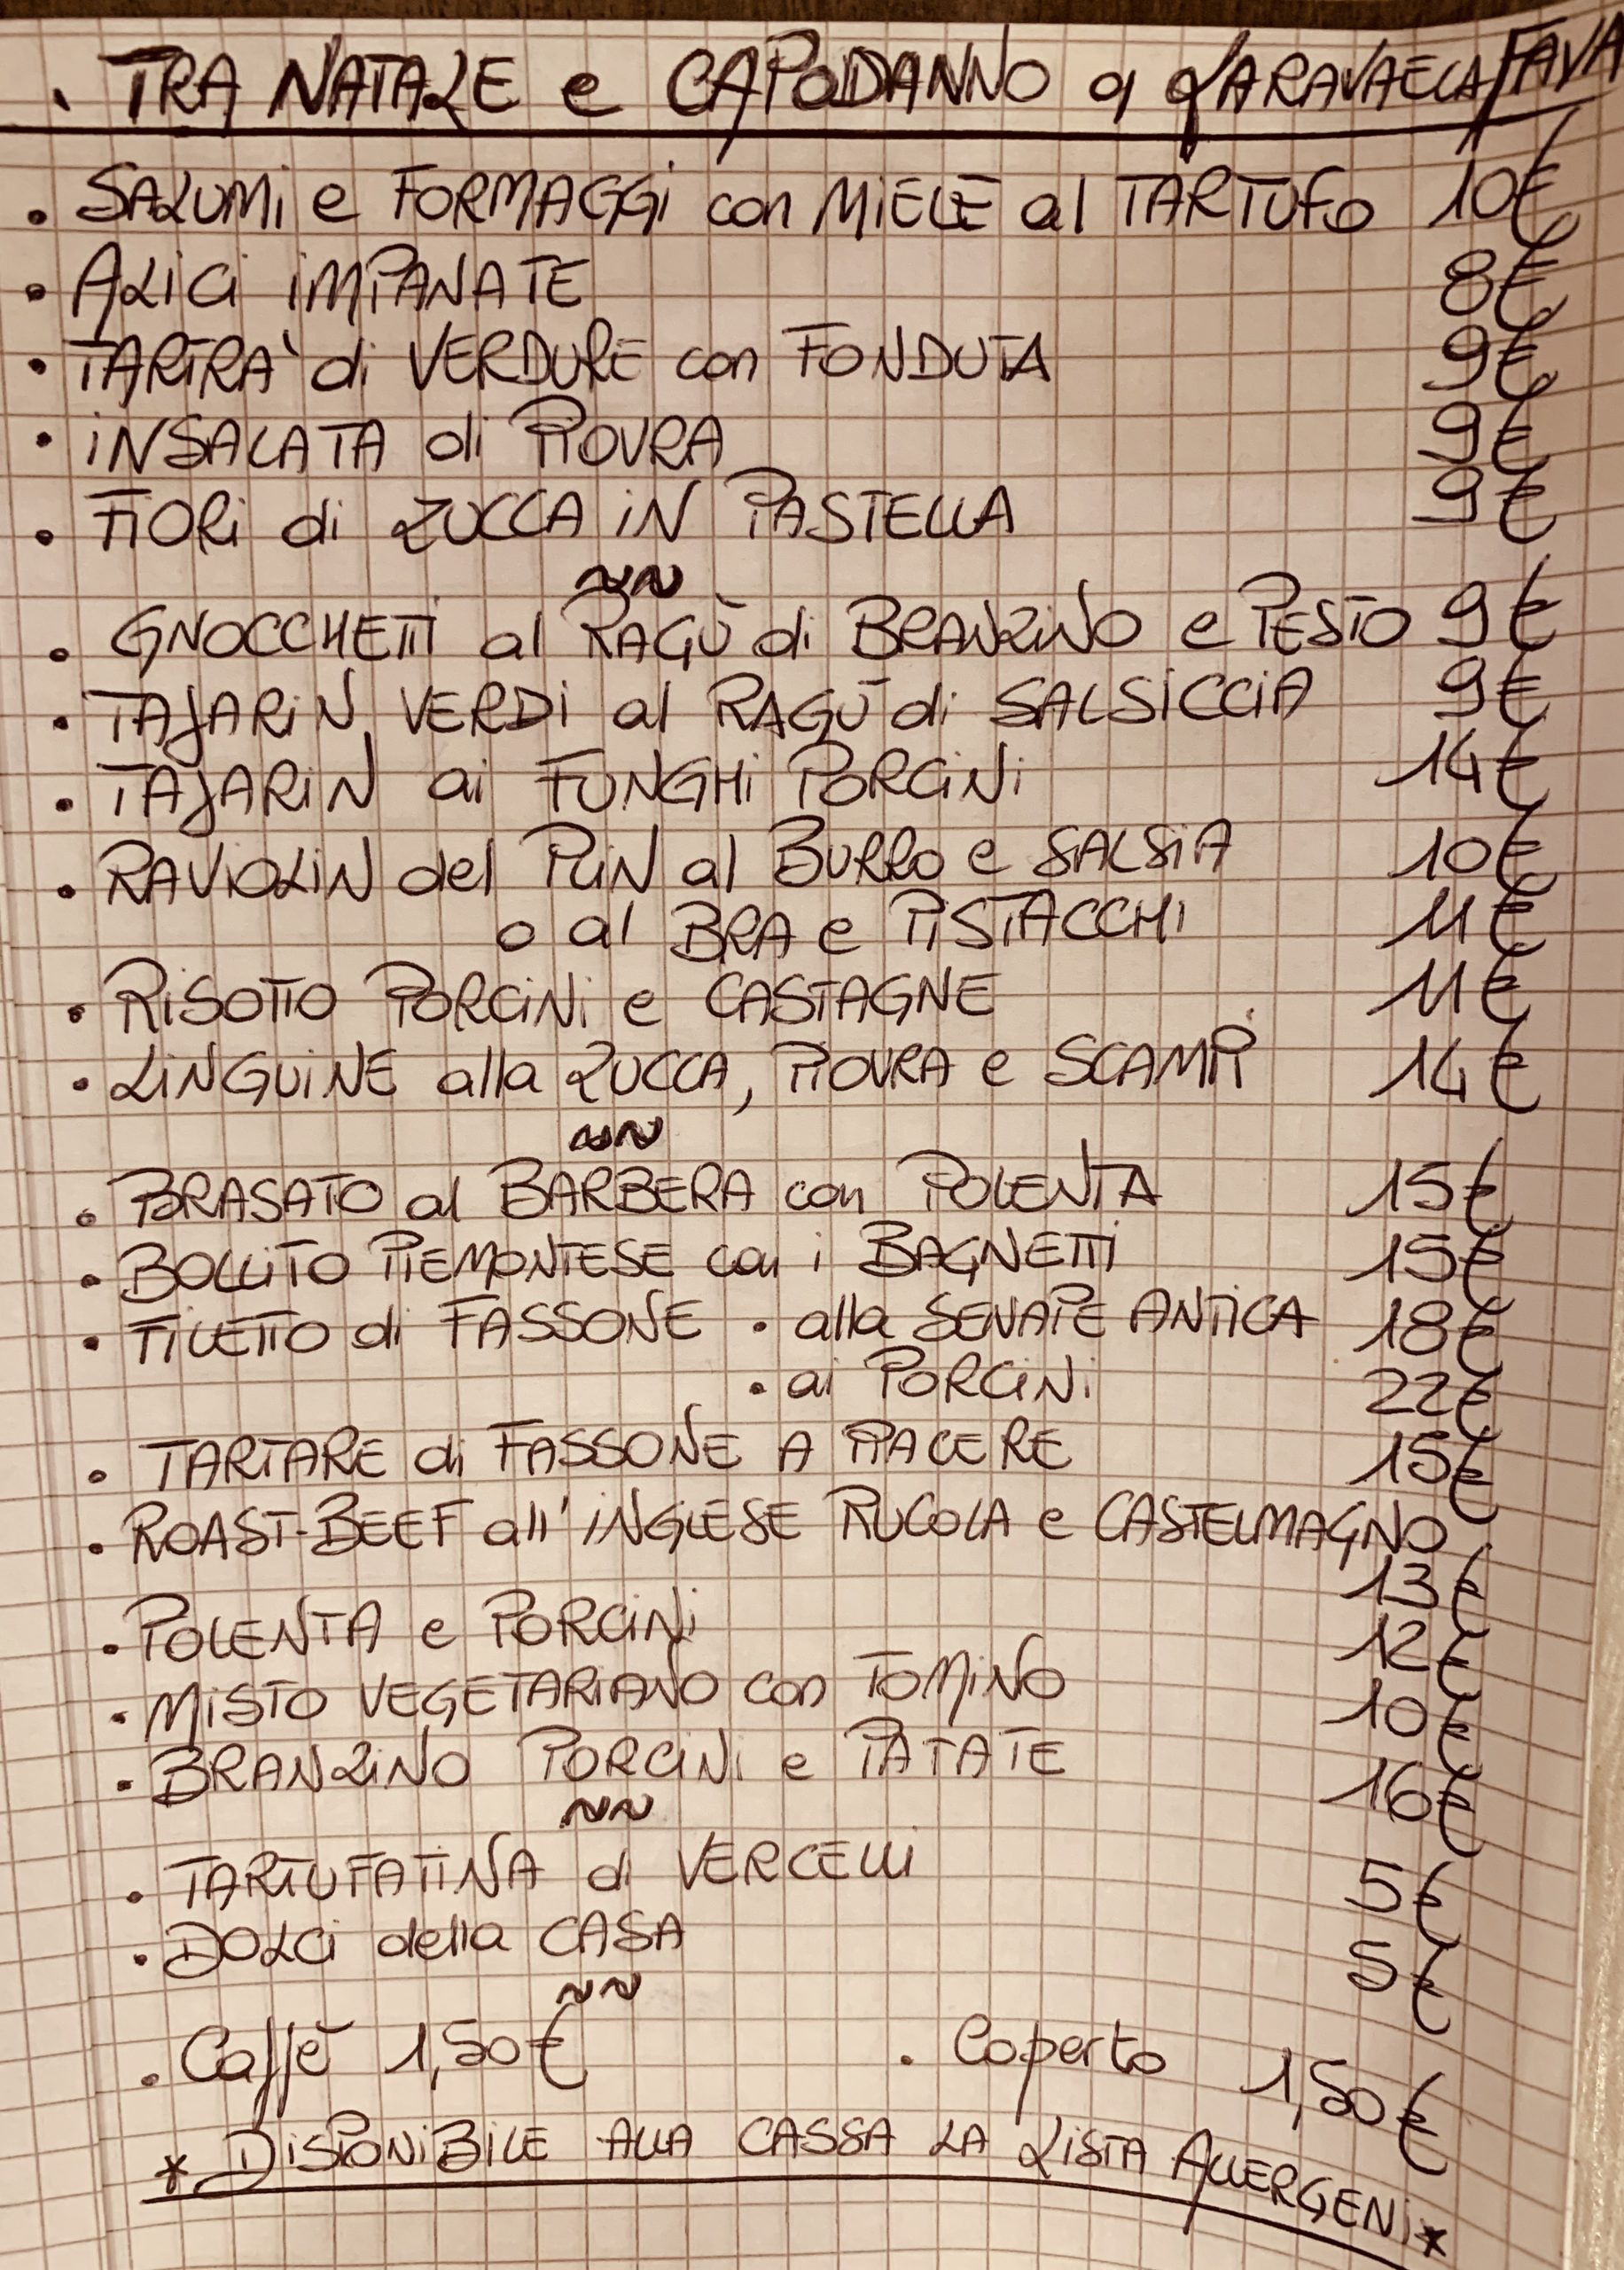 . TRA NATALE e CAPODANNO a
. SALUMI e FORMAGGI con MIELE al TARTUFO 10€
. ALICI IMPANATE 8€
. TARTRA' di VERDURE con FONDUTA 9€
. INSALATA di PIOVRA 9€
. FIORI di ZUCCA IN PASTELLA 9€
~~
. GNOCCHETTI al RAGÙ di BRANZINO e PESTO 9€
. TAJARIN VERDI al RAGÙ di SALSICCIA 9€
. TAJARIN ai FUNGHI PORCINI 14€
. RAVIOLIN del PLIN al BURRO e SALSIA 10€
o al BRA e PISTACCHI 11€
. RISOTTO PORCINI e CASTAGNE 11€
. LINGUINE alla ZUCCA, PIOVRA e SCAMPI 14€
~~
. BRASATO al BARBERA con POLENTA 15€
. BOLLITO PIEMONTESE con i BAGNETTI 15€
. FILETTO di FASSONE . alla SENAPE ANTICA 18€
. ai PORCINI 22€
. TARTARE di FASSONE A PIACERE 15€
. ROAST-BEEF all'INGLESE RUCOLA e CASTELMAGNO
13€
. POLENTA e PORCINI 12€
. MISTO VEGETARIANO con TOMINO 10€
. BRANZINO PORCINI e PATATE 16€
~~
. TARTUFATINA di VERCELLI 5€
. DOLCI della CASA 5€
~~
. Caffè 1,50€ . Coperto 1,50€
* DISPONIBILE ALLA CASSA LA LISTA ALLERGENI *